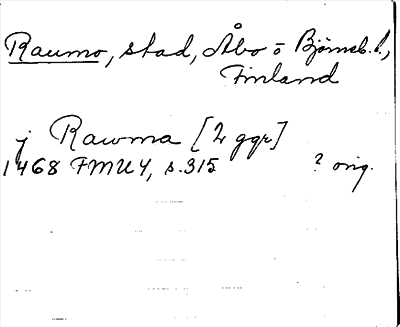 Raumo, stad, Åbo o Björneb. l.,
Finland
j Rawma [2 ggr]
1468 FMU 4, s.315 ? orig.